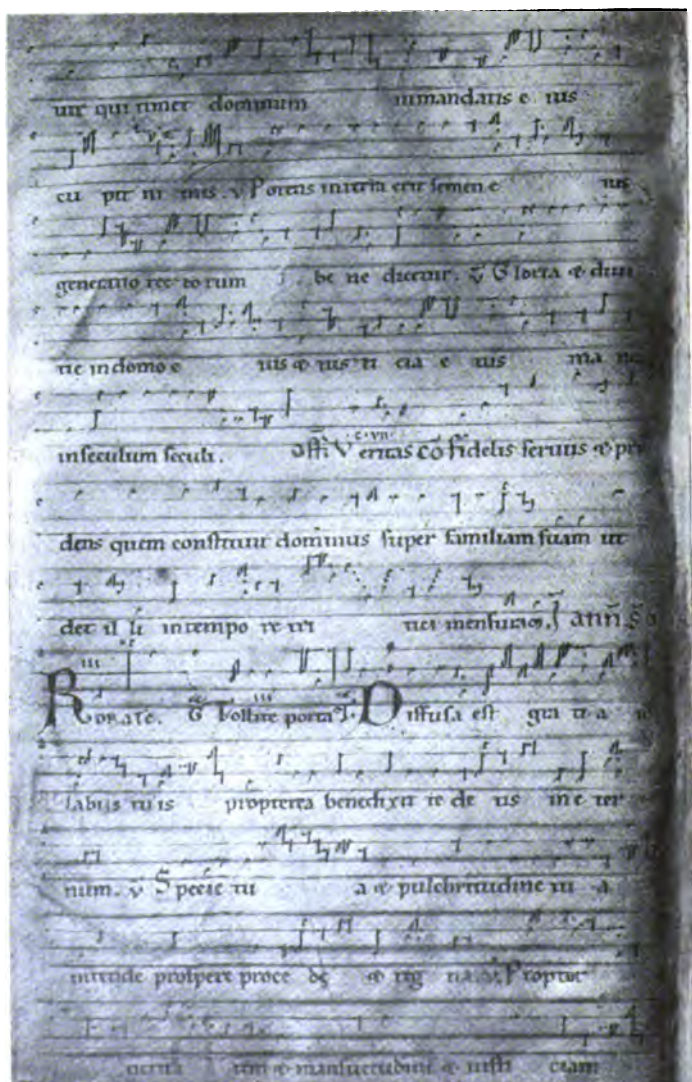 uir qui timet dominum inmandatis e ius
cu pit ni mis. v Potens interra erit semen e ius
generatio rec to rum be ne dicetur. v Gloria & diui
tie indomo e ius & ius ti cia e ius ma net
inseculum seculi. off. Veritas co Fidelis seruus & pru
dens quem constituit dominus super familiam suam ut
det il li intempo re tri tici mensuram. annu
Rorate. Tollite portas Diffusa est gra ti a
labiis tuis propterea benedixit te de us ine ter
num. v Specie tu a & pulchritudine tu a
intende prospere proce de & reg na. v Propter
ueritatem & mansuetudinem & iusti ciam